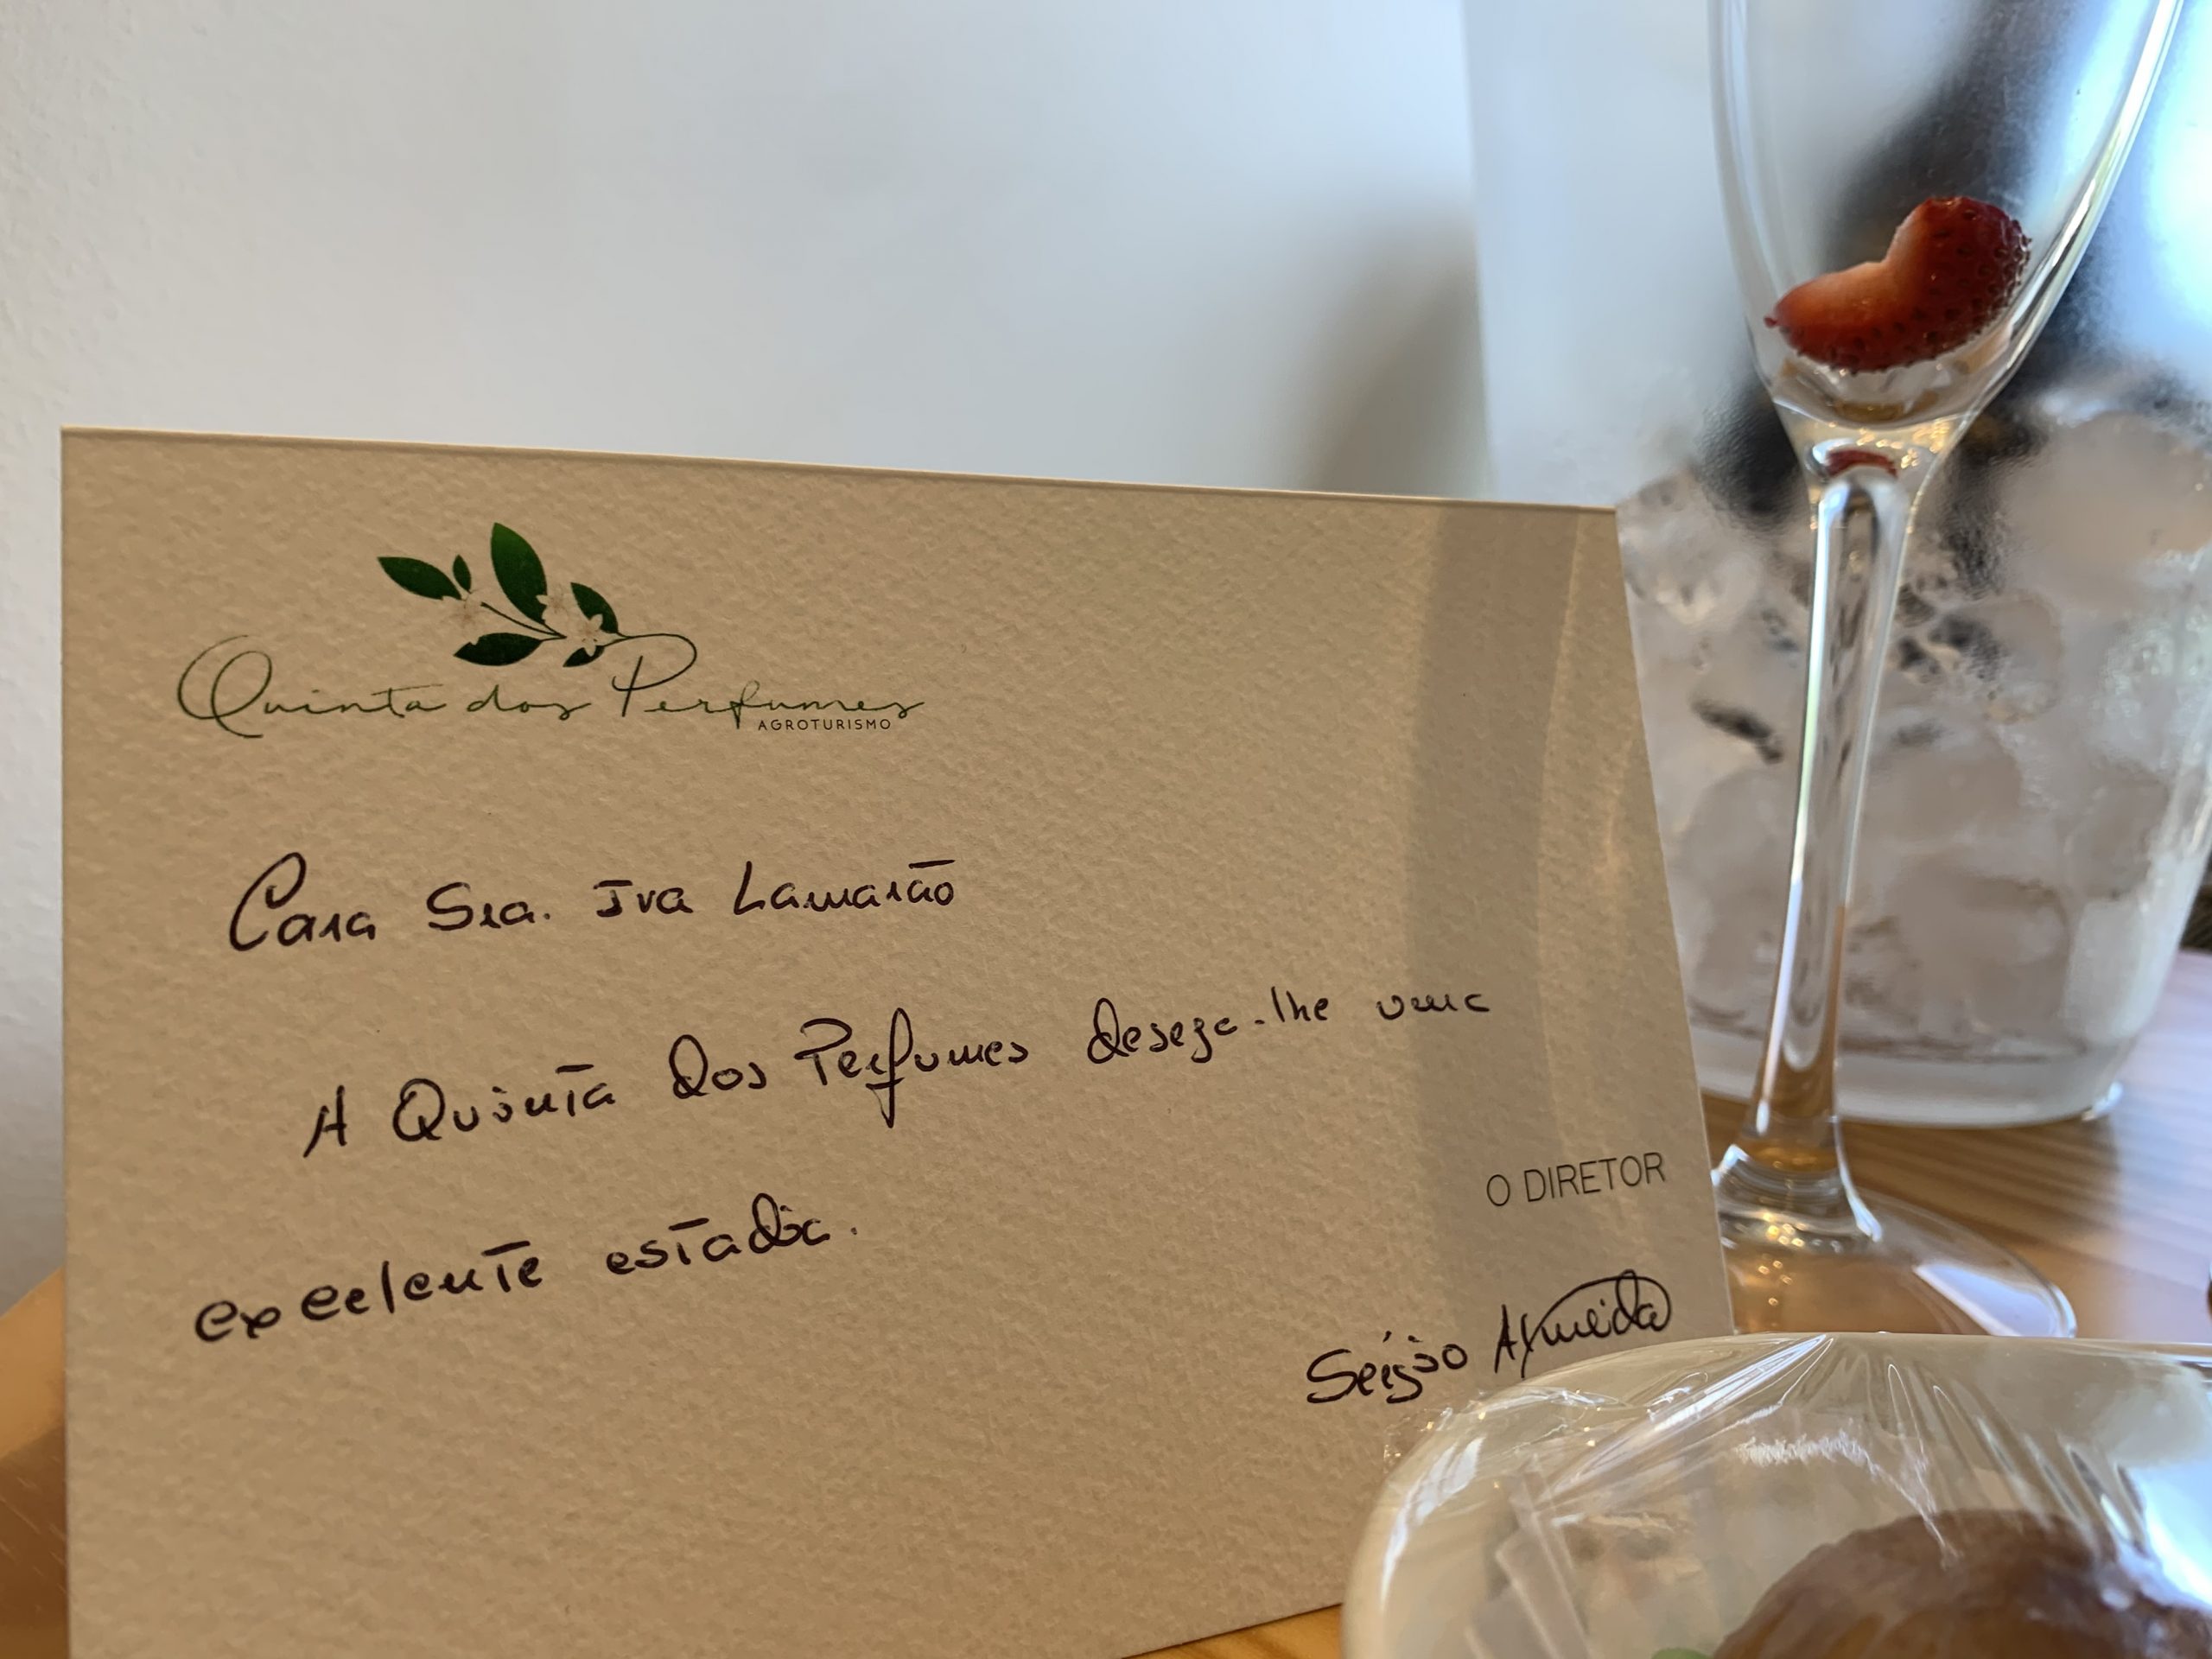 Quinta dos Perfumes
AGROTURISMO
Cara Sra. Iva Lamarão
A Quinta Dos Perfumes deseja-lhe uma
excelente estadia.
O DIRETOR
Sérgio Almeida